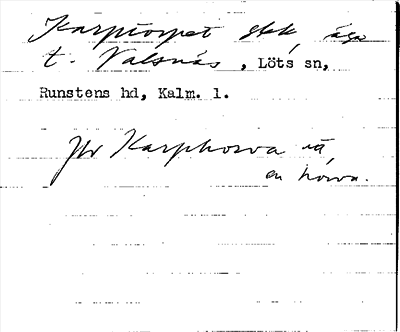 Karptorpet stek, äga
t. Valsnäs, Löts sn,
Runstens hd, Kalm. l.
Jfr Karphorva
en horva.